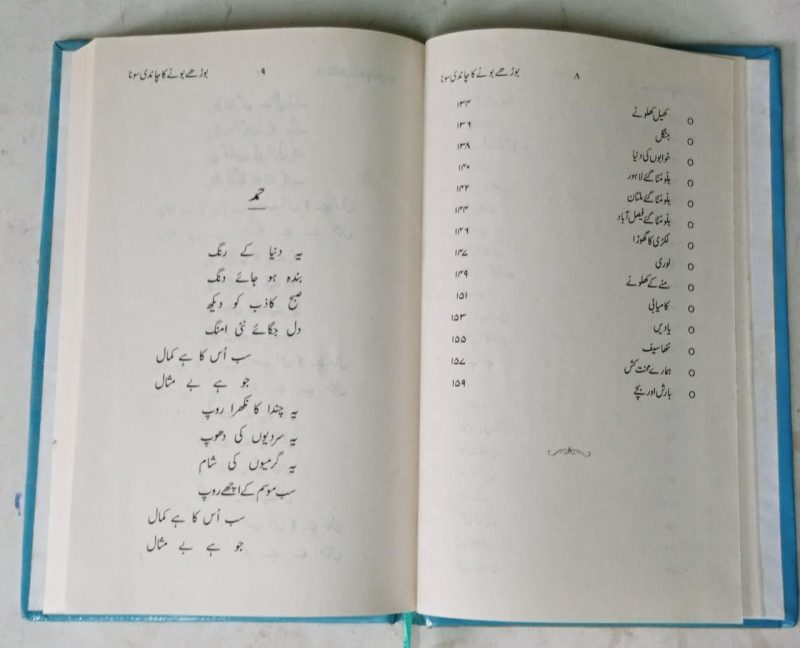 ۸ بوڑھے بونے کا چاندی سونا
o کھیل کھلونے ۱۳۴
o جنگل ۱۳۶
o خوابوں کی دنیا ۱۳۸
o بلّو مُنّا گئے لاہور ۱۴۰
o بلّو مُنّا گئے ملتان ۱۴۲
o بلّو مُنّا گئے فیصل آباد ۱۴۴
o لکڑی کا گھوڑا ۱۴۶
o لوری ۱۴۷
o منے کے کھلونے ۱۴۹
o کامیابی ۱۵۱
o یادیں ۱۵۳
o ننھا سیف ۱۵۵
o ہمارے محنت کش ۱۵۷
o بارش اور بچے ۱۵۹
۹ بوڑھے بونے کا چاندی سونا
حمد
یہ دنیا کے رنگ
بندہ ہو جائے دنگ
صبح کاذب کو دیکھ
دل جگائے نئی امنگ
سب اُس کا ہے کمال
جو ہے بے مثال
یہ چندا کا نکھرا روپ
یہ سردیوں کی دھوپ
یہ گرمیوں کی شام
سب موسم کے اچھے روپ
سب اُس کا ہے کمال
جو ہے بے مثال